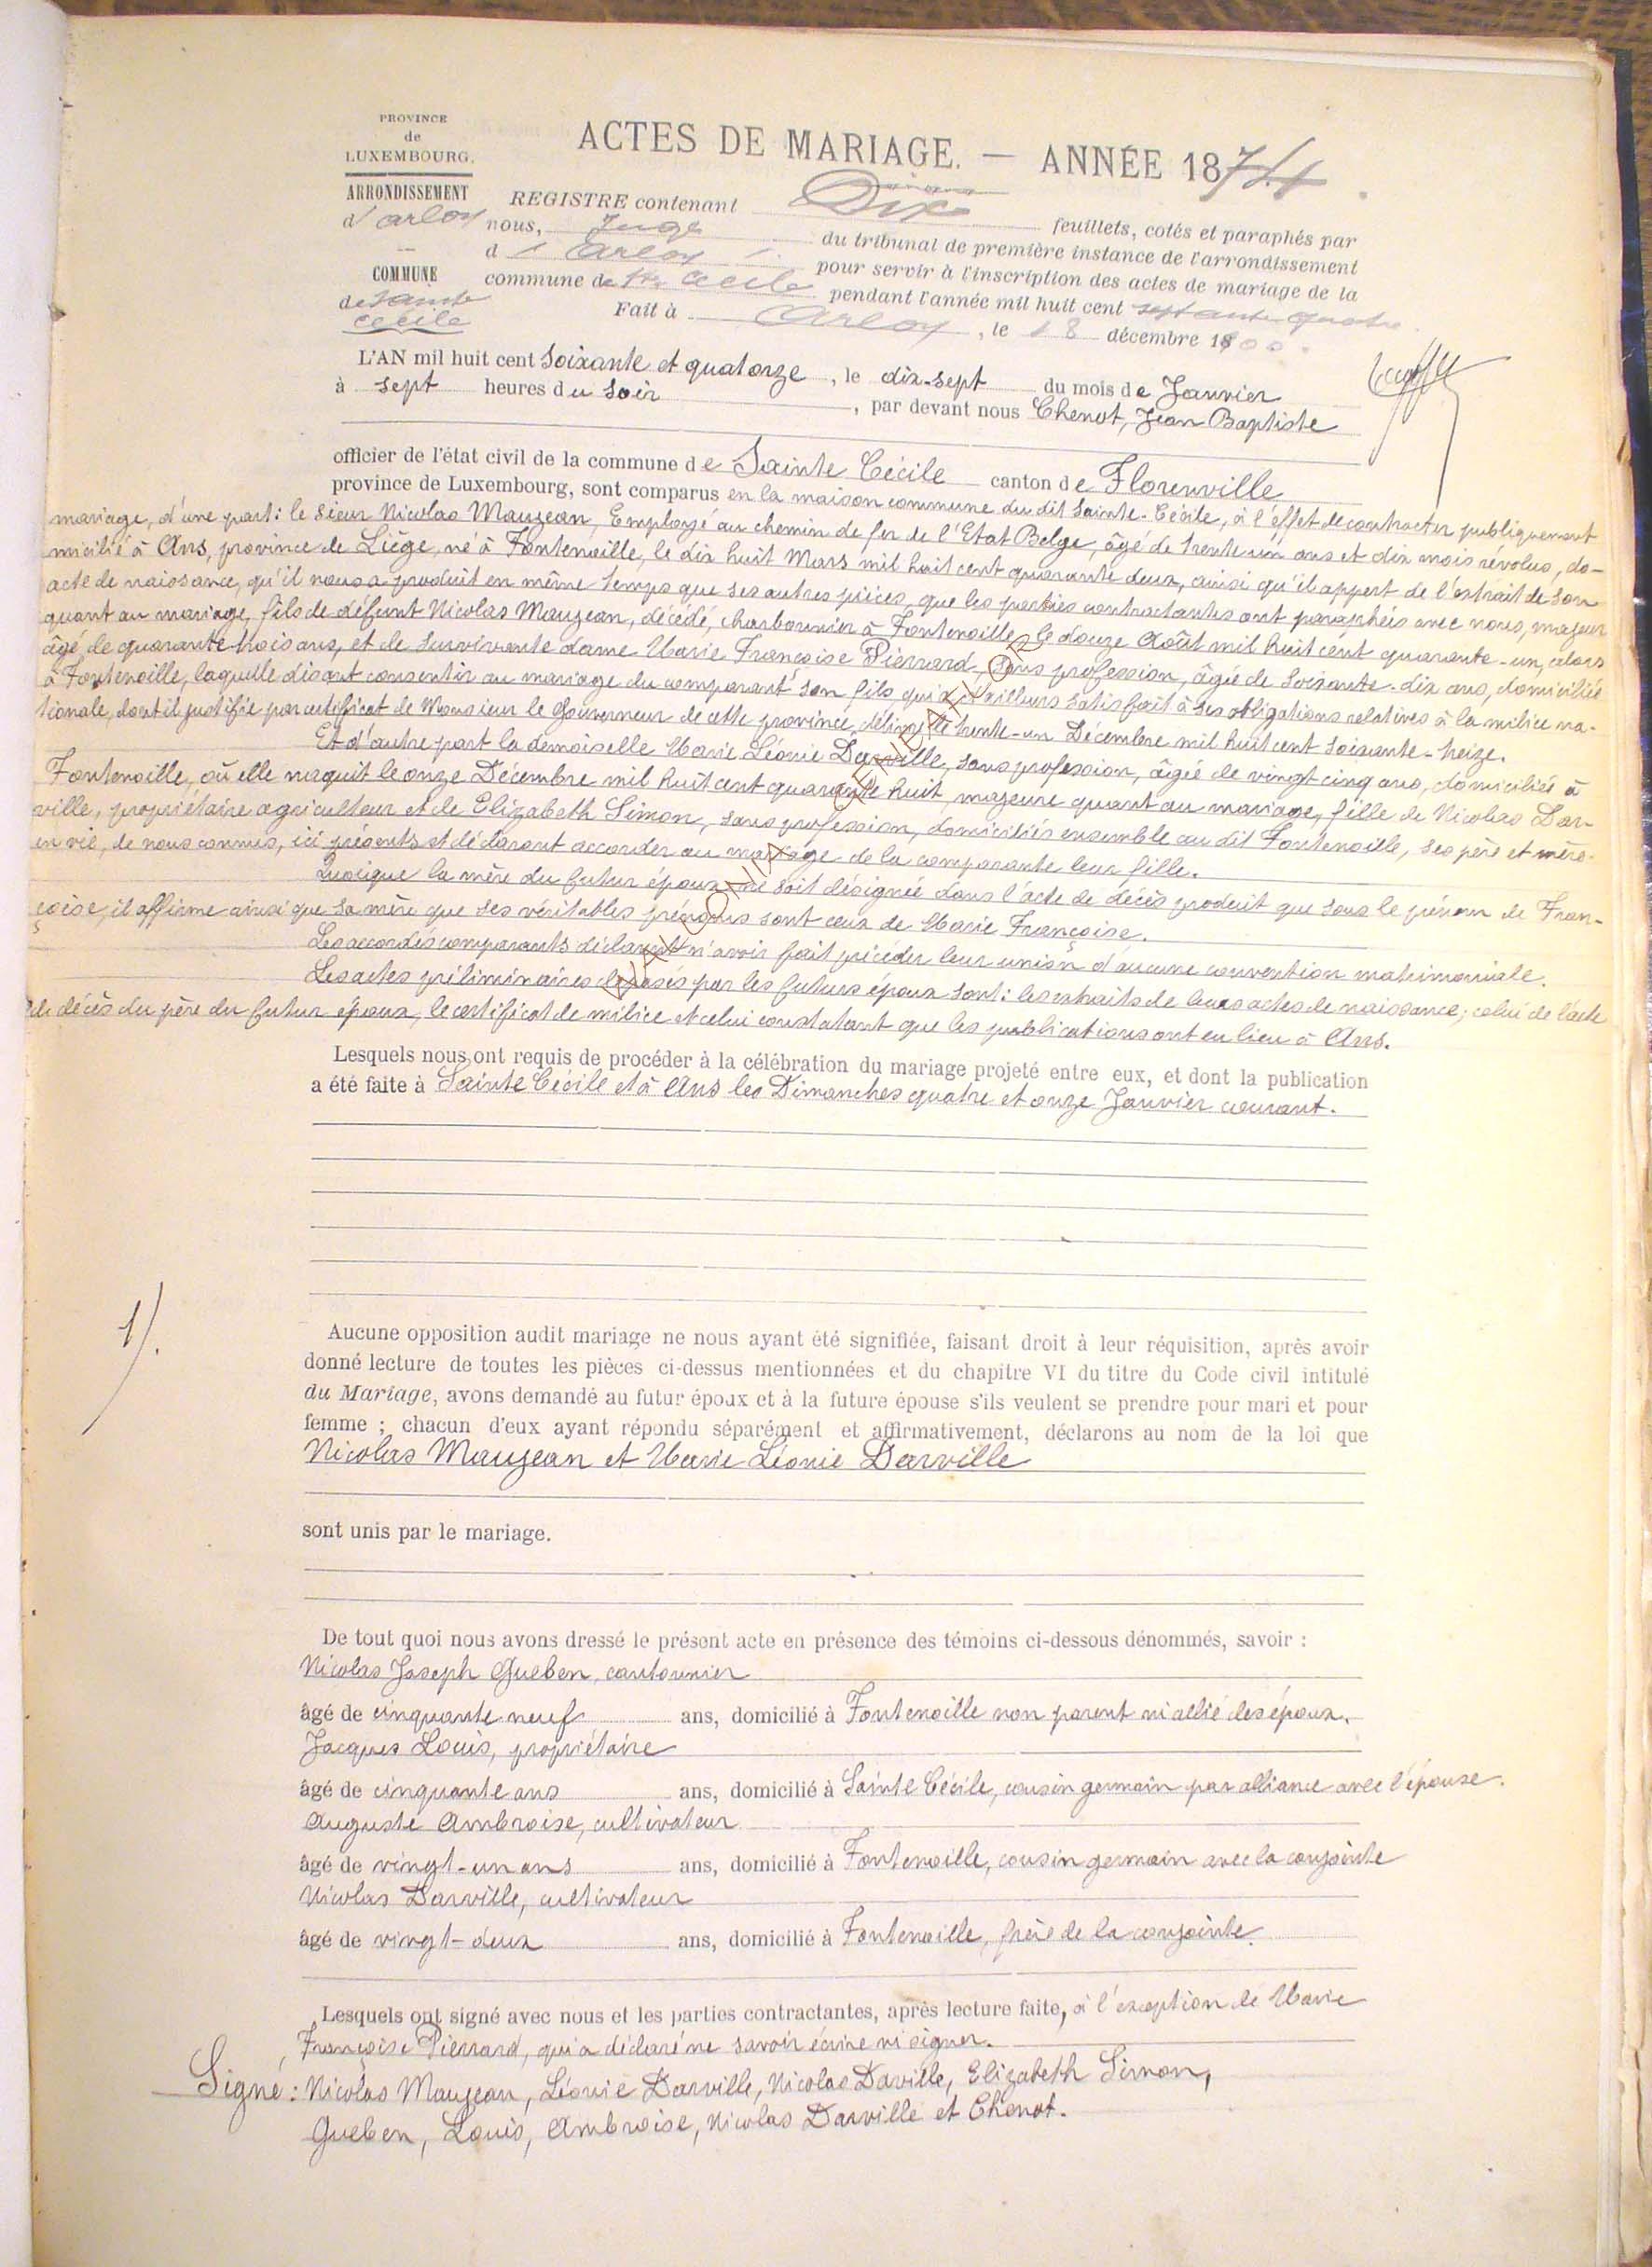 PROVINCE
de
LUXEMBOURG.
ARRONDISSEMENT
d'arlon
COMMUNE
de Sainte
Cécile
ACTES DE MARIAGE. — ANNÉE 1874.
REGISTRE contenant Dix feuillets, cotés et paraphés par
nous, Juge du tribunal de première instance de l'arrondissement
d'Arlon pour servir à l'inscription des actes de mariage de la
commune de Ste Cécile pendant l'année mil huit cent septante quatre.
Fait à Arlon, le 18 décembre 1900.
L'AN mil huit cent soixante et quatorze, le dix-sept du mois de Janvier
à sept heures du soir, par devant nous Chenot, Jean Baptiste
officier de l'état civil de la commune de Sainte Cécile canton de Florenville
province de Luxembourg, sont comparus en la maison commune du dit Sainte-Cécile, à l'effet de contracter publiquement
mariage, d'une part: le sieur Nicolas Maujean, Employé au chemin de fer de l'Etat Belge, âgé de trente un ans et dix mois révolus, do-
micilié à Ans, province de Liège, né à Fontenoille, le dix huit Mars mil huit cent quarante deux, ainsi qu'il appert de l'extrait de son
acte de naissance, qu'il nous a produit en même temps que ses autres pièces, que les parties contractantes ont paraphées avec nous, majeur
quant au mariage, fils de défunt Nicolas Maujean, décédé, charbonnier à Fontenoille, le douze Août mil huit cent quarante-un, alors
âgé de quarante trois ans, et de survivante dame Marie Françoise Pierrard, sans profession, âgée de soixante-dix ans, domiciliée
à Fontenoille, laquelle disant consentir au mariage du comparant son fils, qui a d'ailleurs satisfait à ses obligations relatives à la milice na-
tionale, dont il justifie par certificat de Monsieur le Gouverneur de cette province, délivré le trente-un Décembre mil huit cent soixante-treize.
Et d'autre part la demoiselle Marie Léonie Darville, sans profession, âgée de vingt cinq ans, domiciliée à
Fontenoille, où elle naquit le onze Décembre mil huit cent quarante huit, majeure quant au mariage, fille de Nicolas Dar-
ville, propriétaire agriculteur et de Elizabeth Simon, sans profession, domiciliés ensemble au dit Fontenoille, ses père et mère
en vie, de nous connus, ici présents et déclarant accorder au mariage de la comparante leur fille.
Quoique la mère du futur époux ne soit désignée dans l'acte de décès produit que sous le prénom de Fran-
çoise, il affirme ainsi que sa mère que ses véritables prénoms sont ceux de Marie Françoise.
Les accordés comparants déclarent n'avoir fait précéder leur union d'aucune convention matrimoniale.
Les actes préliminaires déposés par les futurs époux sont: les extraits de leurs actes de naissance; celui de l'acte
de décès du père du futur époux, le certificat de milice et celui constatant que les publications ont eu lieu à Ans.
Lesquels nous ont requis de procéder à la célébration du mariage projeté entre eux, et dont la publication
a été faite à Sainte Cécile et à Ans les Dimanches quatre et onze Janvier courant.
1/.
Aucune opposition audit mariage ne nous ayant été signifiée, faisant droit à leur réquisition, après avoir
donné lecture de toutes les pièces ci-dessus mentionnées et du chapitre VI du titre du Code civil intitulé
du Mariage, avons demandé au futur époux et à la future épouse s'ils veulent se prendre pour mari et pour
femme ; chacun d'eux ayant répondu séparément et affirmativement, déclarons au nom de la loi que
Nicolas Maujean et Marie Léonie Darville
sont unis par le mariage.
De tout quoi nous avons dressé le présent acte en présence des témoins ci-dessous dénommés, savoir :
Nicolas Joseph Gueben, cantonnier
âgé de cinquante neuf ans, domicilié à Fontenoille non parent ni allié des époux.
Jacques Louis, propriétaire
âgé de cinquante ans ans, domicilié à Sainte Cécile, cousin germain par alliance avec l'épouse.
Auguste Ambroise, cultivateur
âgé de vingt-un ans ans, domicilié à Fontenoille, cousin germain avec la conjointe
Nicolas Darville, cultivateur
âgé de vingt-deux ans, domicilié à Fontenoille, frère de la conjointe.
Lesquels ont signé avec nous et les parties contractantes, après lecture faite, à l'exception de Marie
Françoise Pierrard, qui a déclaré ne savoir écrire ni signer.
Signé: Nicolas Maujean, Léonie Darville, Nicolas Daville, Elizabeth Simon,
Gueben, Louis, Ambroise, Nicolas Darville et Chenot.